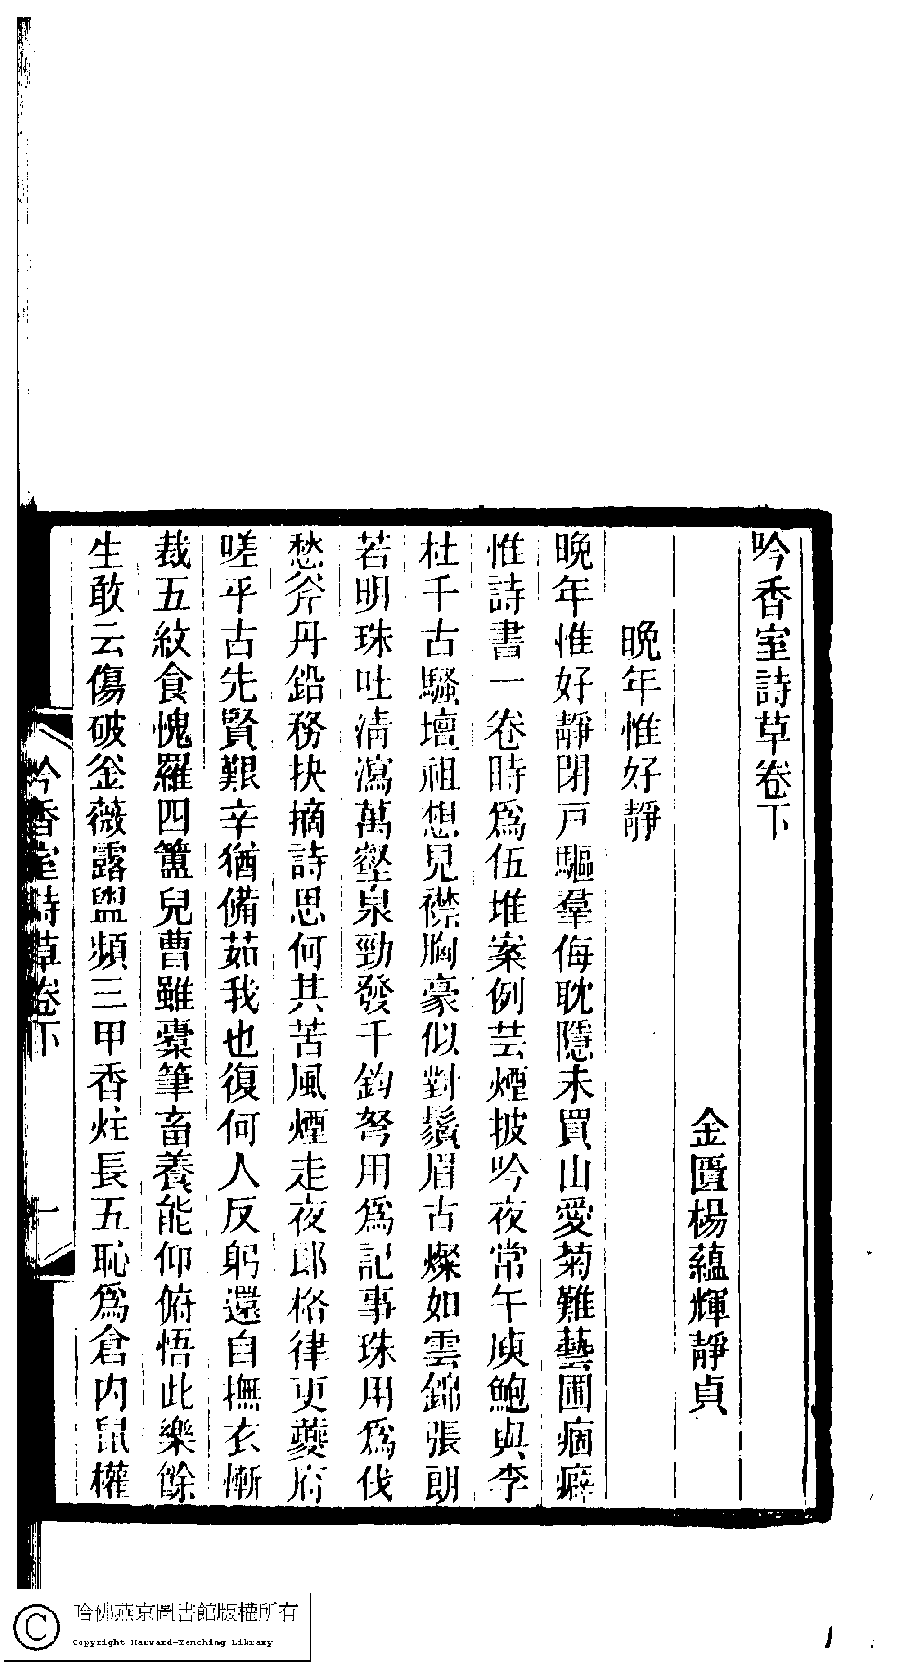 吟香室詩草卷下
金匱楊蘊輝靜貞
晚年惟好靜
晚年惟好靜閉戸驅羣侮耽隱未買山愛菊難藝圃痼癖
惟詩書一卷時爲伍堆案例芸煙披吟夜常午庾鮑與李
杜千古騷壇祖想見襟胸豪似對鬚眉古燦如雲錦張朗
若明珠吐清瀉萬壑泉勁發千鈞弩用爲記事珠用爲伐
愁斧丹鉛務抉摘詩思何其苦風煙走夜郎格律更夔府
嗟乎古先賢艱辛猶備茹我也復何人反躬還自撫衣慚
裁五紋食愧羅四簋兒曹雖橐筆畜養能仰俯悟此樂餘
生敢云傷破釜薇露盥頻三甲香炷長五恥爲倉內鼠權
吟香室詩草卷下
一
哈佛燕京圖書館版權所有
Copyright Harvard-Yenching Library
1